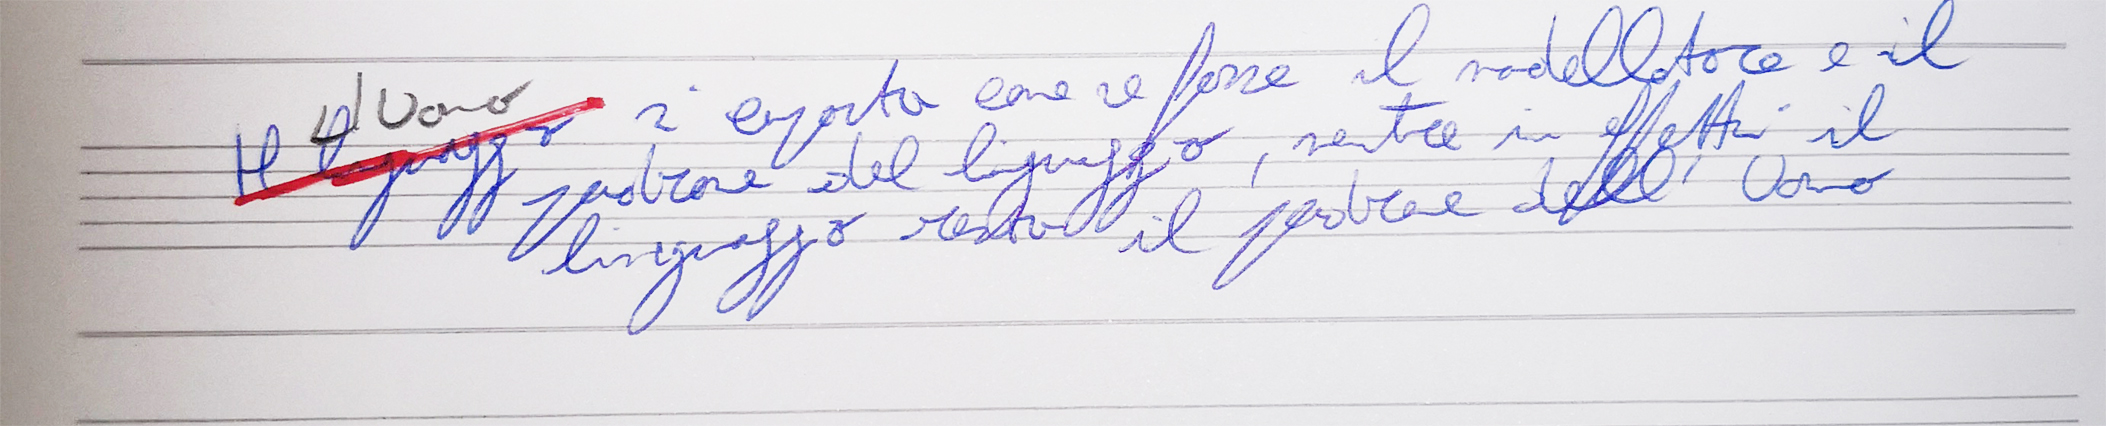 L'Uomo
Il linguaggio si comporta come se fosse il modellatore e il
padrone del linguaggio, mentre in effetti il
linguaggio resta il padrone dell'Uomo